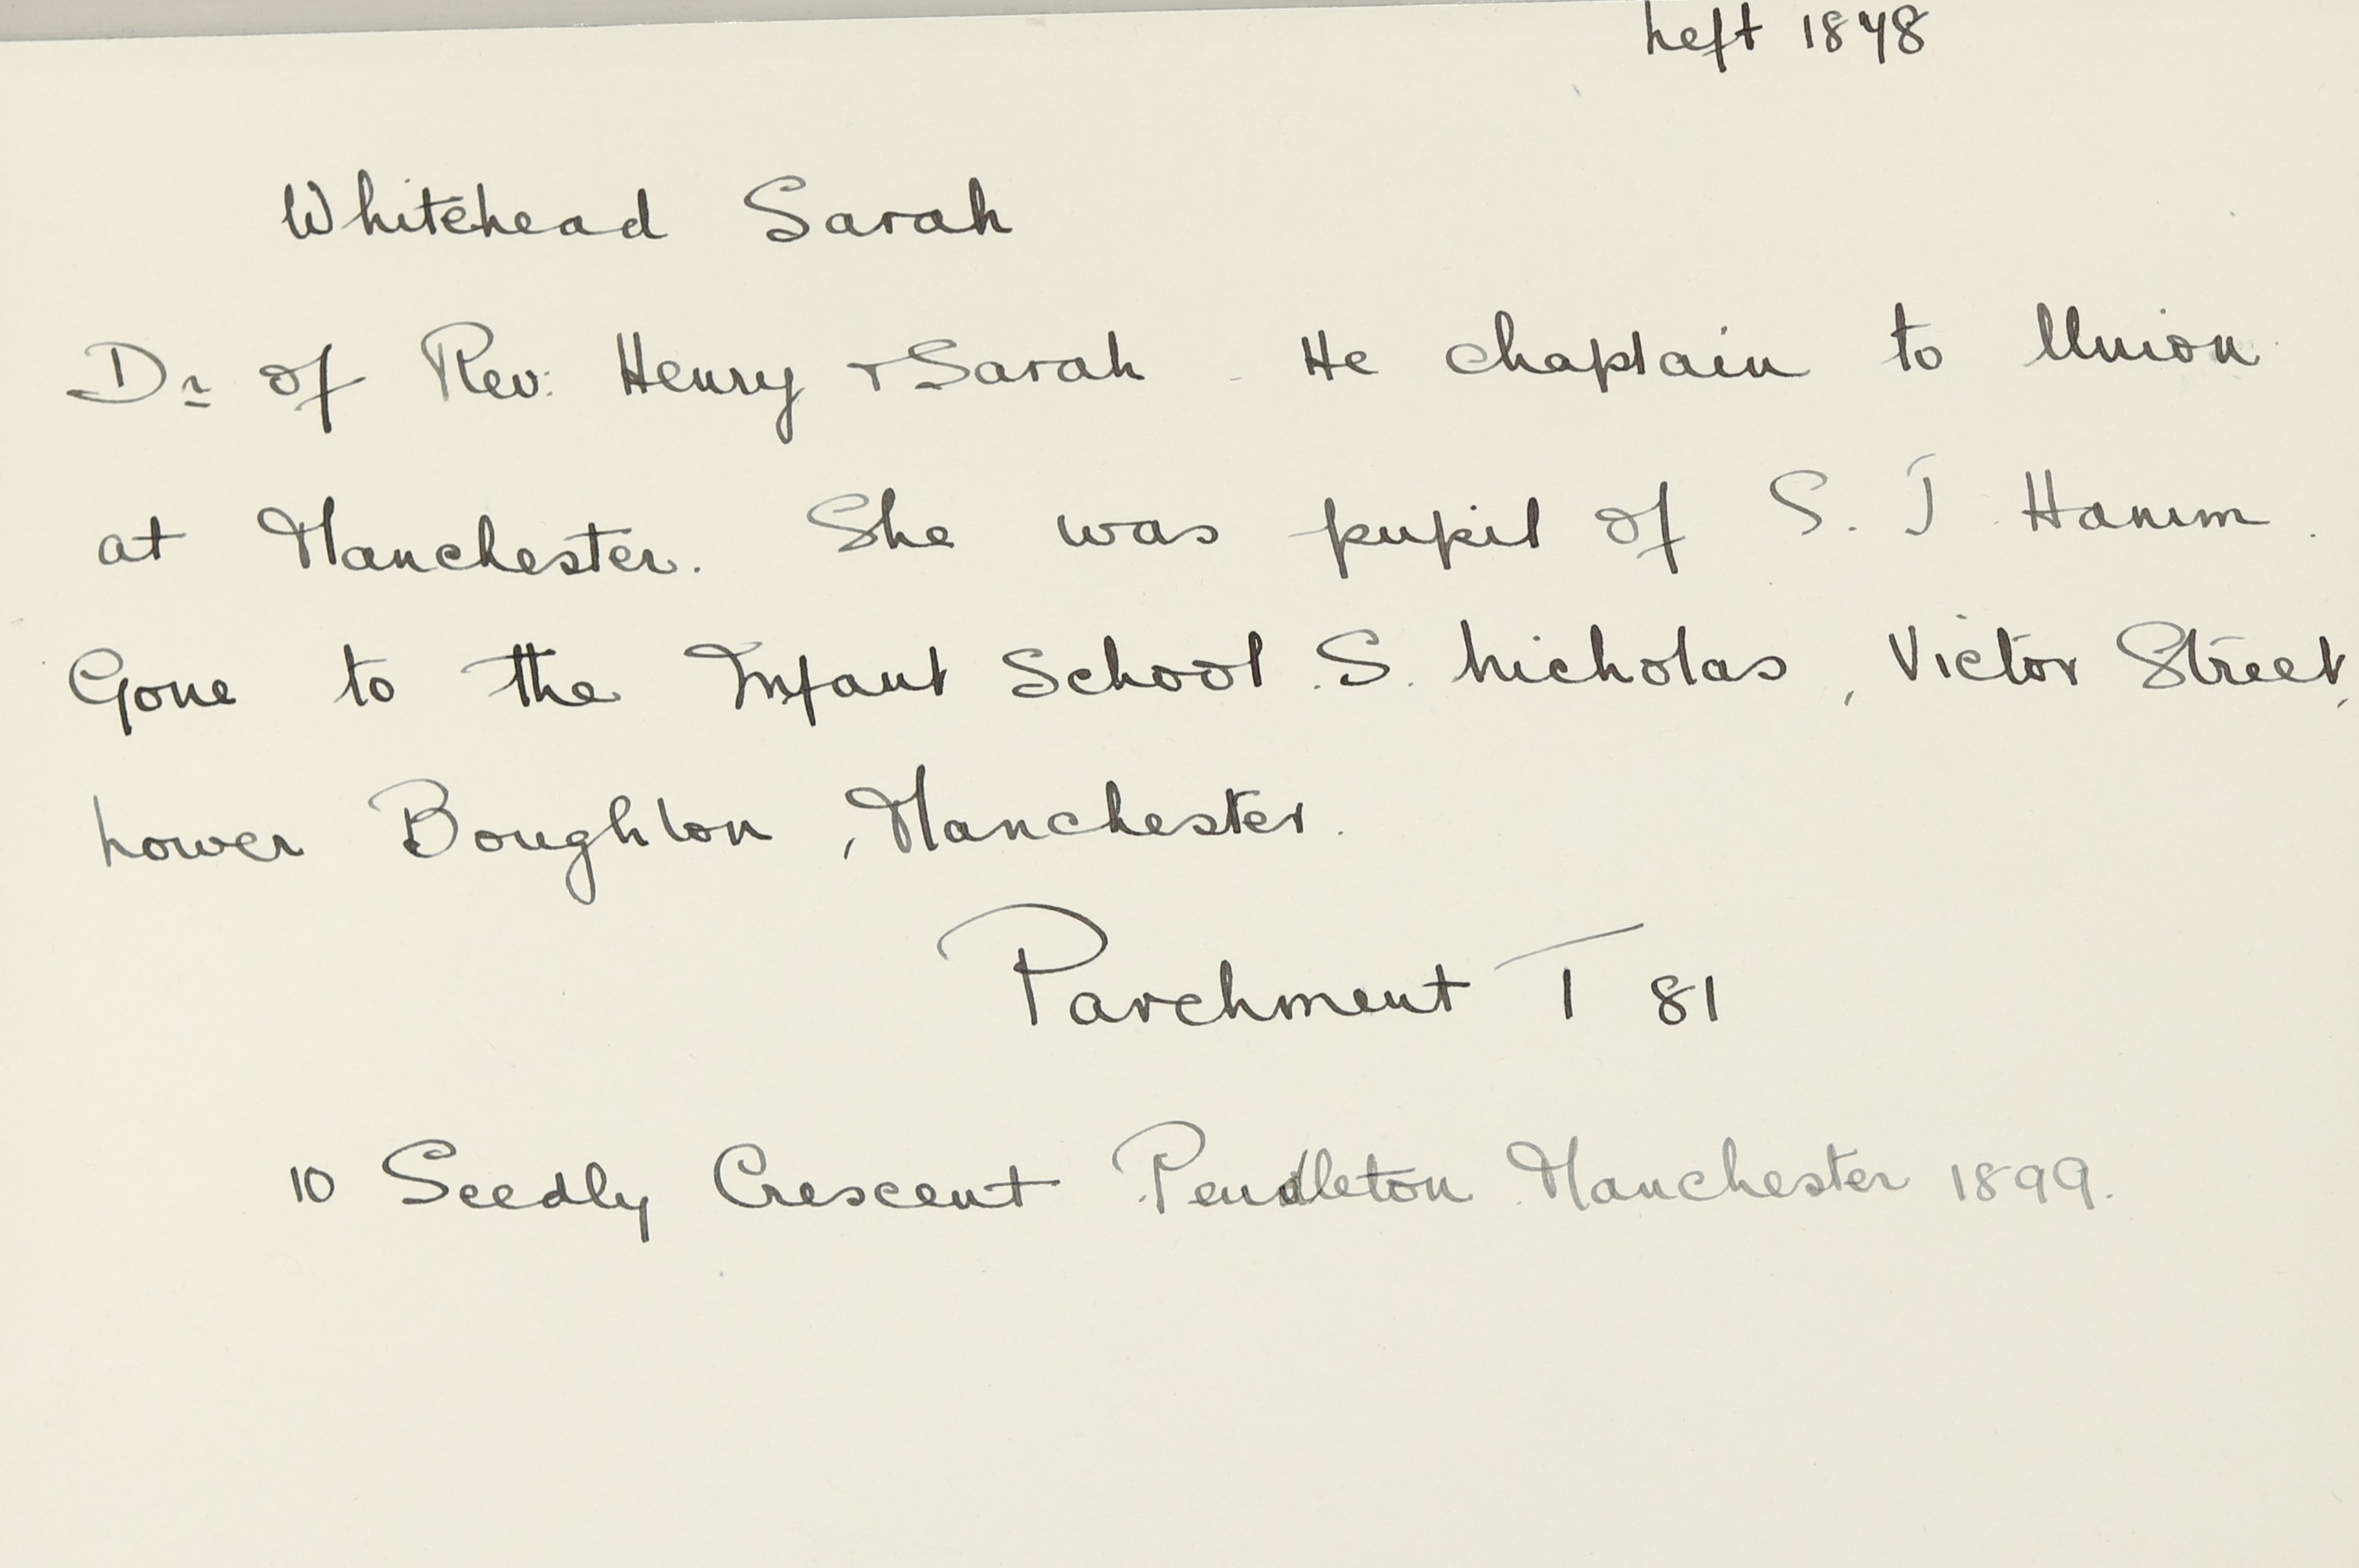 Left 1848
Whitehead Sarah
Dr of Rev: Henry + Sarah - He chaplain to Union
at Manchester. She was pupil of S. J. Hanim.
Gone to the Infant School. S. Nicholas, Victor Street,
Lower Boughton, Manchester.
Parchment T 81
10 Seedly Crescent Pendleton Manchester 1899.